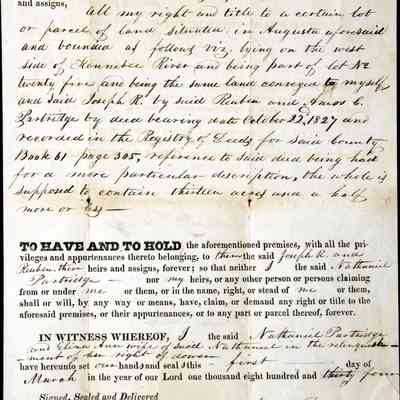 and assigns,
all my right and title to a certain lot
or parcel of land situated in Augusta aforesaid
and bounded as follows viz, lying on the west
side of Kennebec River and being part of lot No
twenty five and being the same land conveyed to myself
and said Joseph R. by said Reuben and Amos C.
Partridge by deed bearing date October 22, 1827 and
recorded in the Registry of Deeds for said County
Book 61 page 305, reference to said deed being had
for a more particular description, the whole is
supposed to contain thirteen acres and a half
more or less —
TO HAVE AND TO HOLD the aforementioned premises, with all the pri-
vileges and appurtenances thereto belonging, to them the said Joseph R. and
Reuben, their heirs and assigns, forever; so that neither I the said Nathaniel
Partridge — nor my heirs, or any other person or persons claiming
from or under me or them, or in the name, right, or stead of me or them,
shall or will, by any way or means, have, claim, or demand any right or title to the
aforesaid premises, or their appurtenances, or to any part or parcel thereof, forever.
IN WITNESS WHEREOF, I the said Nathaniel Partridge
and Eliza Ann wife of said Nathaniel in the relinquish-
ment of her right of dower
have hereunto set our hand and seal this first day of
March in the year of our Lord one thousand eight hundred and thirty four
Signed, Sealed and Delivered